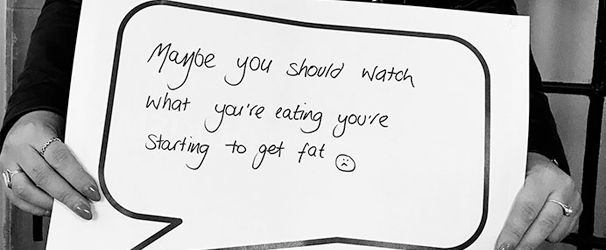 Maybe you should watch
what you're eating you're
starting to get fat ☹